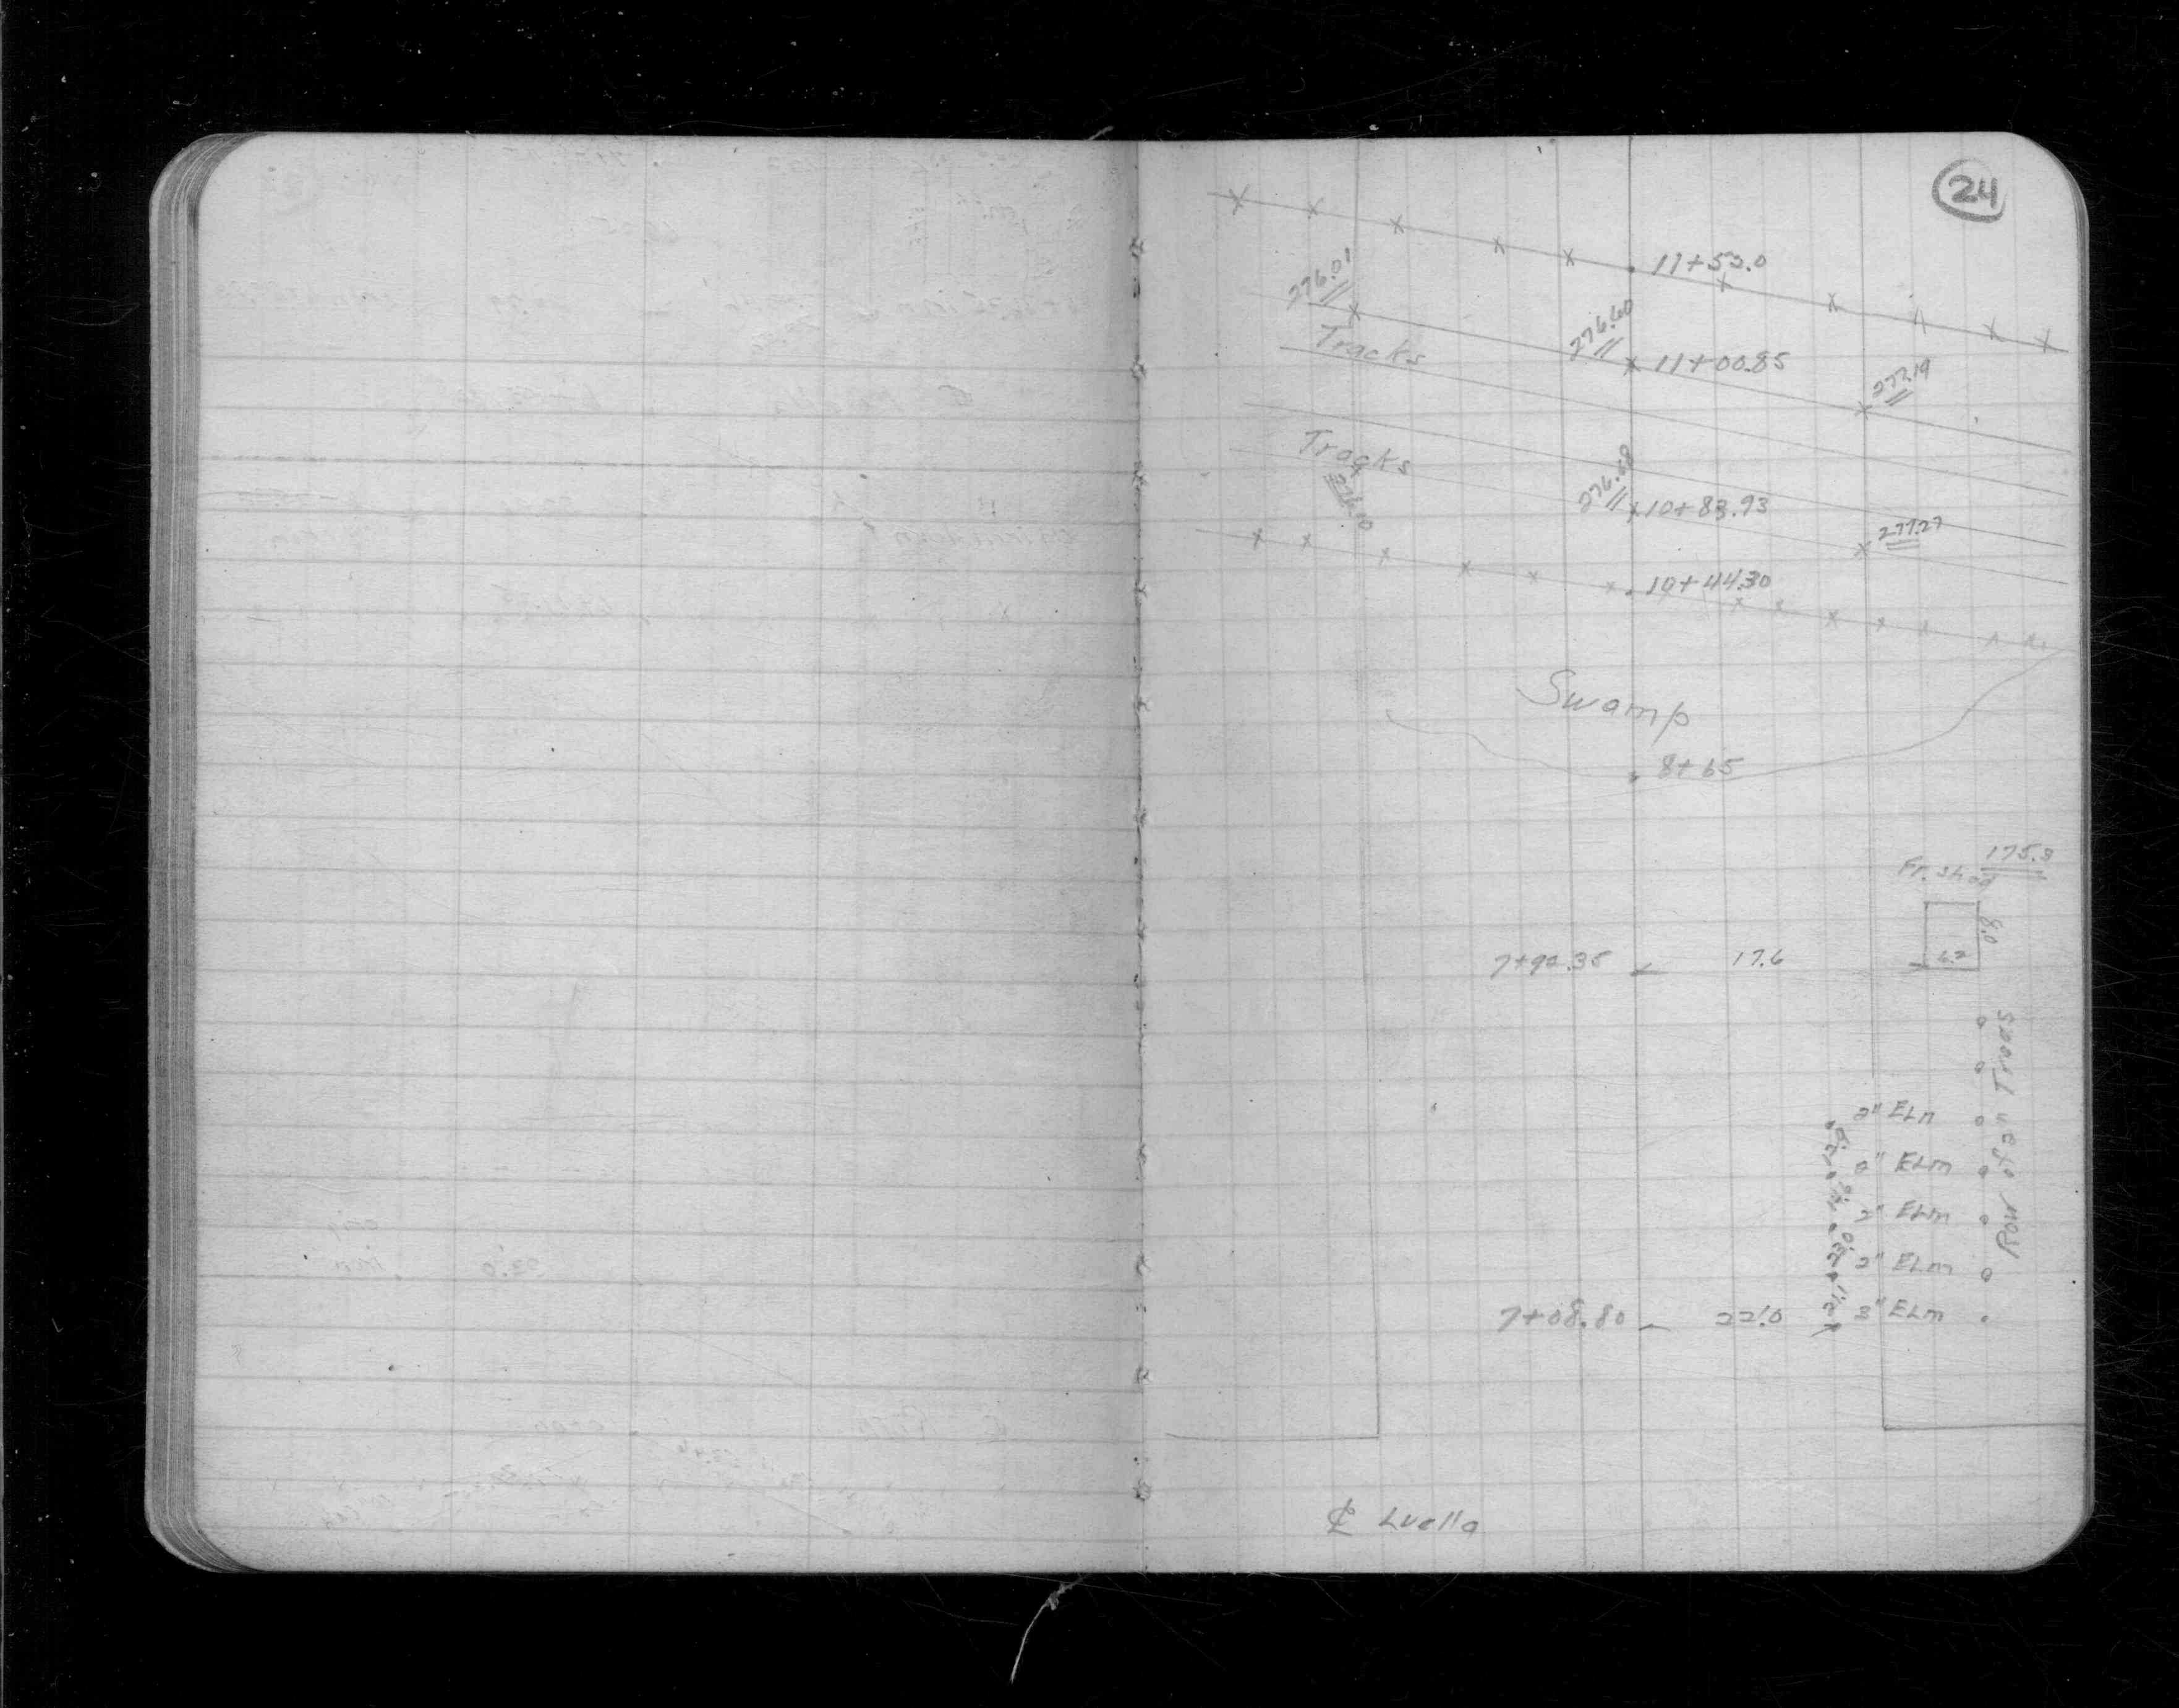 24
11+53.0
276.01
276.60
Tracks
11+00.85
277.19
Tracks
276.10
276.68
10+83.93
277.27
10+44.30
Swamp
8+65
175.3
Fr. Shed
8.0
7+92.35 17.6 6.2
2" ELm
2" ELm
2" ELm
2" ELm
7+08.80 22.0 3" ELm
Row of 2" Trees
℄ Luella